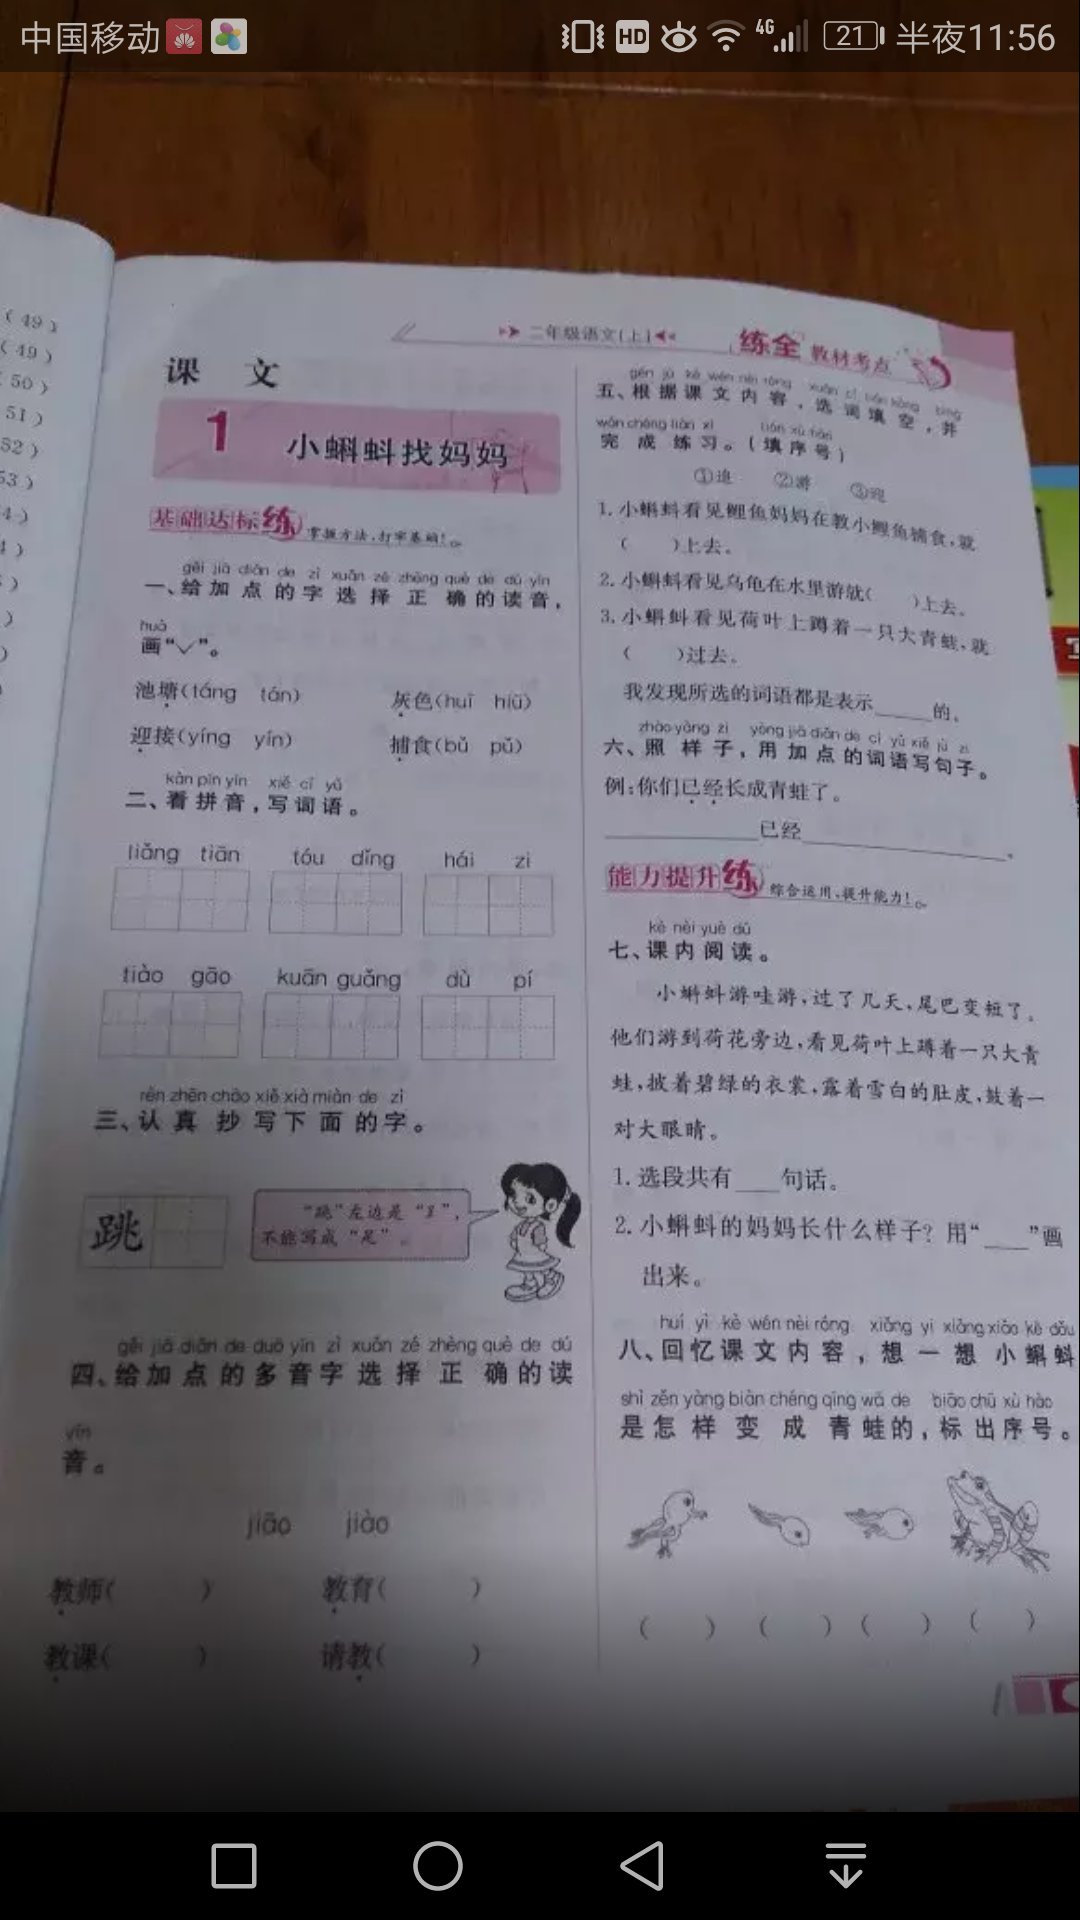 中国移动
HD
4G
21
半夜11:56
( 49 )
( 49 )
50 )
51 )
52 )
53 )
二年级语文(上)
练全 教材考点
课 文
1 小蝌蚪找妈妈
基础达标练 掌握方法,打牢基础!
gěi jiā diǎn de zì xuǎn zé zhèng què de dú yīn
一、给加点的字选择正确的读音,
huà
画“✓”。
池塘(táng tán) 灰色(huī hiū)
迎接(yíng yín) 捕食(bǔ pǔ)
kàn pīn yīn xiě cí yǔ
二、看拼音,写词语。
liǎng tiān tóu dǐng hái zi
tiào gāo kuān guǎng dù pí
rèn zhēn chāo xiě xià miàn de zì
三、认真抄写下面的字。
跳
“跳”左边是“𧾷”,
不能写成“足”。
gěi jiā diǎn de duō yīn zì xuǎn zé zhèng què de dú
四、给加点的多音字选择正确的读
yīn
音。
jiāo jiào
教师( ) 教育( )
教课( ) 请教( )
gēn jù kè wén nèi róng xuǎn cí tián kòng bìng
五、根据课文内容,选词填空,并
wán chéng liàn xí tián xù hào
完成练习。(填序号)
①追 ②游 ③迎
1.小蝌蚪看见鲤鱼妈妈在教小鲤鱼捕食,就
( )上去。
2.小蝌蚪看见乌龟在水里游就( )上去。
3.小蝌蚪看见荷叶上蹲着一只大青蛙,就
( )过去。
我发现所选的词语都是表示____的。
zhào yàng zi yòng jiā diǎn de cí yǔ xiě jù zi
六、照样子,用加点的词语写句子。
例:你们已经长成青蛙了。
____已经____。
能力提升练 综合运用,提升能力!
kè nèi yuè dú
七、课内阅读。
小蝌蚪游哇游,过了几天,尾巴变短了。
他们游到荷花旁边,看见荷叶上蹲着一只大青
蛙,披着碧绿的衣裳,露着雪白的肚皮,鼓着一
对大眼睛。
1.选段共有____句话。
2.小蝌蚪的妈妈长什么样子?用“____”画
出来。
huí yì kè wén nèi róng xiǎng yi xiǎng xiǎo kē dǒu
八、回忆课文内容,想一想小蝌蚪
shì zěn yàng biàn chéng qīng wā de biāo chū xù hào
是怎样变成青蛙的,标出序号。
( ) ( ) ( ) ( )